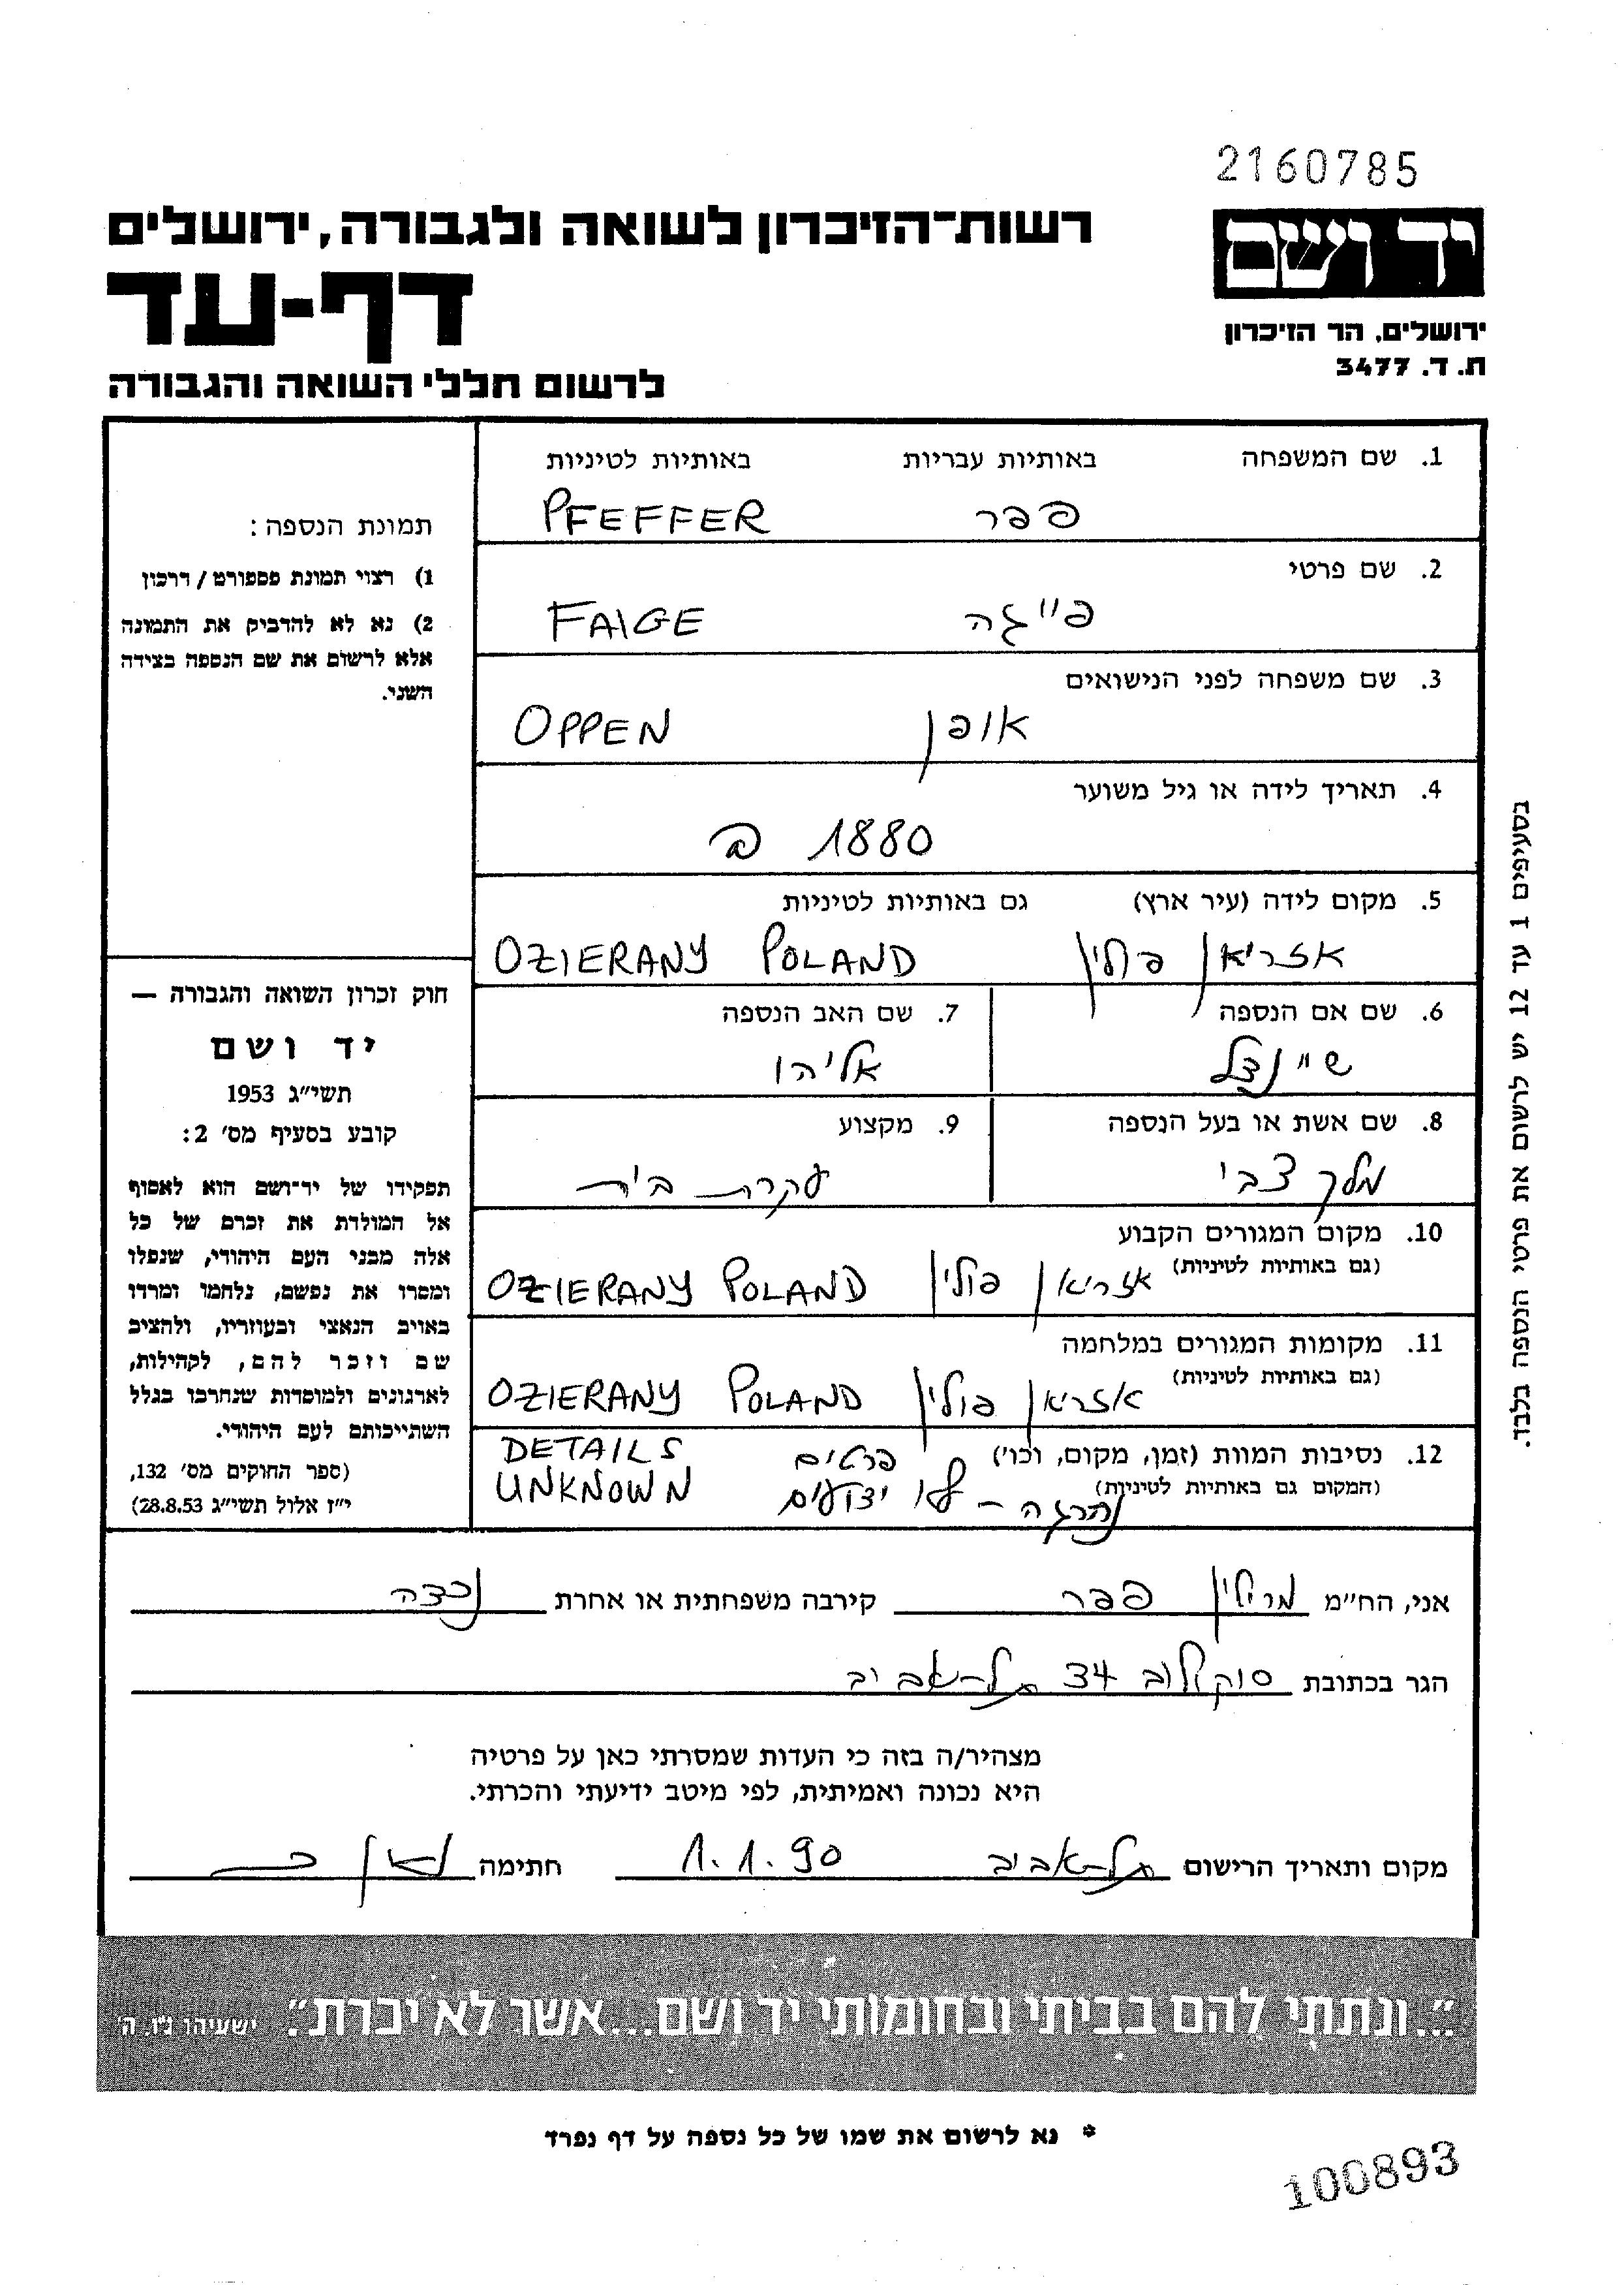 2160785
רשות־הזיכרון לשואה ולגבורה, ירושלים
יד ושם
דף-עד
ירושלים, הר הזיכרון
ת. ד. 3477
לרשום חללי השואה והגבורה
1. שם המשפחה באותיות עבריות באותיות לטיניות
פפר PFEFFER
2. שם פרטי
פייגה FAIGE
3. שם משפחה לפני הנישואים
אופן OPPEN
4. תאריך לידה או גיל משוער
1880
5. מקום לידה (עיר ארץ) גם באותיות לטיניות
אזריאן פולין OZIERANY POLAND
6. שם אם הנספה 7. שם האב הנספה
שיינדל אליהו
8. שם אשת או בעל הנספה 9. מקצוע
מלך צבי עקרת בית
10. מקום המגורים הקבוע
(גם באותיות לטיניות) אזריאן פולין OZIERANY POLAND
11. מקומות המגורים במלחמה
(גם באותיות לטיניות) אזריאן פולין OZIERANY POLAND
12. נסיבות המוות (זמן, מקום, וכו') פרטים DETAILS
(המקום גם באותיות לטיניות) נהרגה - לא ידועים UNKNOWN
תמונת הנספה:
1) רצוי תמונת פספורט / דרכון
2) נא לא להדביק את התמונה
אלא לרשום את שם הנספה בצידה
השני.
חוק זכרון השואה והגבורה —
יד ושם
תשי״ג 1953
קובע בסעיף מס׳ 2:
תפקידו של יד־ושם הוא לאסוף
אל המולדת את זכרם של כל
אלה מבני העם היהודי, שנפלו
ומסרו את נפשם, נלחמו ומרדו
באויב הנאצי ובעוזריו, ולהציב
שם וזכר להם, לקהילות,
לארגונים ולמוסדות שנחרבו בגלל
השתייכותם לעם היהודי.
(ספר החוקים מס׳ 132,
י״ז אלול תשי״ג 28.8.53)
בסעיפים 1 עד 12 יש לרשום את פרטי הנספה בלבד.
אני, הח״מ מרילין פפר קירבה משפחתית או אחרת נכדה
הגר בכתובת סוקולוב 34 תל-אביב
מצהיר/ה בזה כי העדות שמסרתי כאן על פרטיה
היא נכונה ואמיתית, לפי מיטב ידיעתי והכרתי.
מקום ותאריך הרישום תל-אביב 1.1.90 חתימה
״...ונתתי להם בביתי ובחומותי יד ושם...אשר לא יכרת״. ישעיהו נ״ו, ה׳
* נא לרשום את שמו של כל נספה על דף נפרד
100893